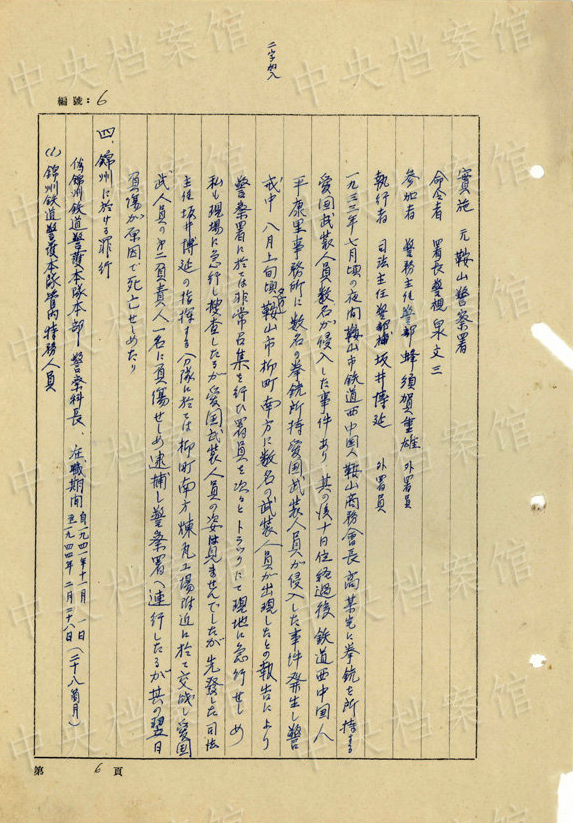 二字加入
編號：6
實施　元鞍山警察署
命令者　署長警視　泉文三
参加者　警務主任警部　蜂須賀重雄　外署員
執行者　司法主任警部補　坂井博延　外署員
一九三三年七月頃の夜間鞍山市鉄道西中国人鞍山商務會長高某宅に拳銃を所持する
愛国武装人員数名が侵入した事件あり　其の後十日位経過後鉄道西中国人
平康里事務所に数名の拳銃所持愛国武装人員が侵入した事件発生し警
戒中　八月上旬頃鞍山市柳町南方に数名の武装人員が出現したとの報告により
警察署に於ては非常召集を行ひ署員を次々とトラックにて現地に急行せしめ
私も現場に急行し捜査したるが愛国武装人員の姿は見ませんでしたが先発した司法
主任坂井博延の指揮する分隊に於ては柳町南方煉瓦工場附近に於て交戦し愛国
武装人員の責人一名に負傷せしめ逮捕し警察署へ連行したるが其の翌日
負傷が原因で死亡せしめたり
四、錦州に於ける罪行
偽錦州鉄道警護本隊本部警察科長、在職期間　自一九四一年十一月一日　至一九四四年二月二十八日（二十八箇月）
(1) 錦州鉄道警護本隊管内特務人員
第　6　頁
中央档案馆